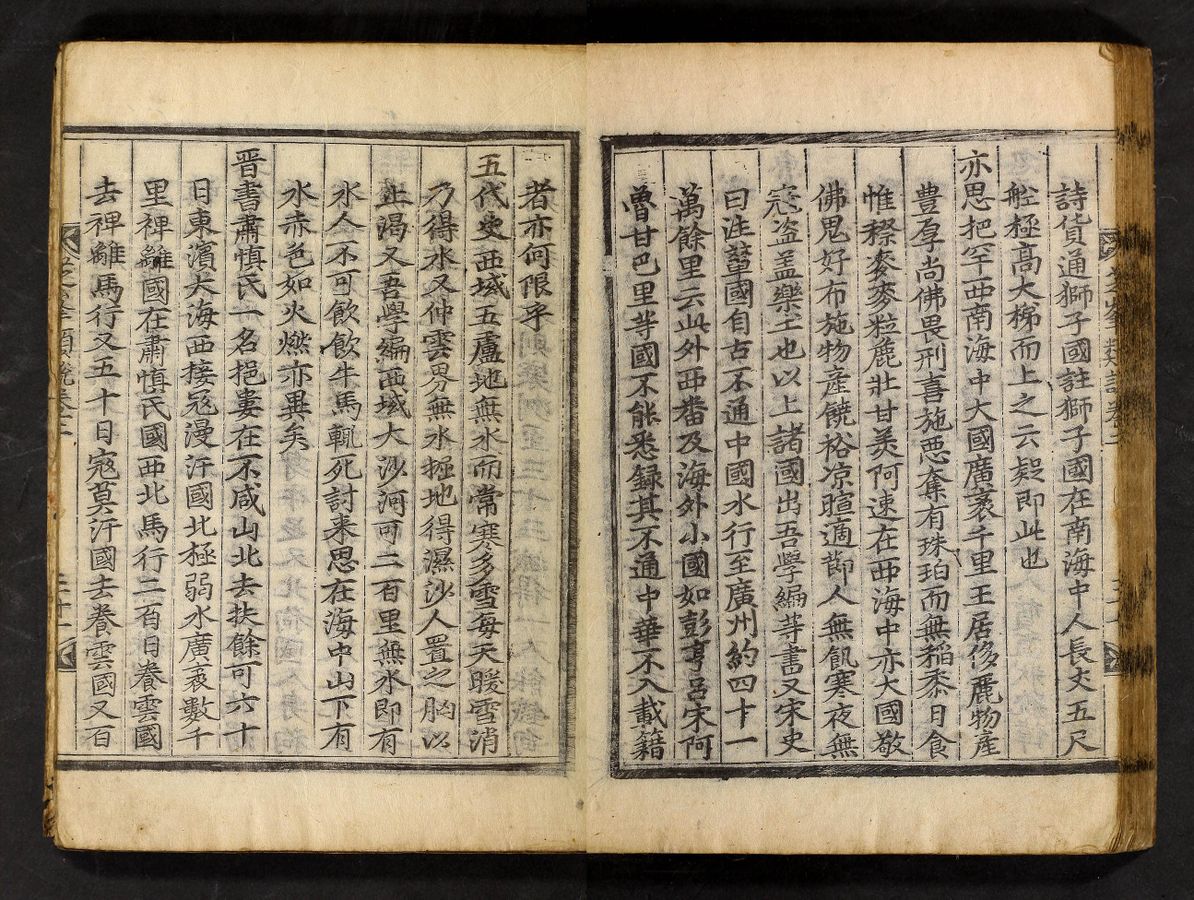 詩貨通獅子國註獅子國在南海中人長丈五尺
舡極高大梯而上之云疑即此也
亦思把罕西南海中大國廣袤千里王居侈麗物產
豊厚尚佛畏刑喜施惡奪有珠珀而無稻黍日食
惟穄麥麥粒麁壯甘美阿速在西海中亦大國敬
佛鬼好布施物產饒裕凉暄適莭人無飢寒夜無
寇盗盖樂土也以上諸國出吾學編等書又宋史
曰注輦國自古不通中國水行至廣州約四十一
萬餘里云此外西番及海外小國如彭亨呂宋阿
魯甘巴里等國不能悉録其不通中華不入載籍
者亦何限乎
五代史西域五盧地無水而常寒多雪每天暖雪消
乃得水又仲雲界無水掘地得濕沙人置之胸以
止渴又吾學編西域大沙河可二百里無水即有
水人不可飲飮牛馬輒死討来思在海中山下有
水赤色如火燃亦異矣
晋書肅慎氏一名挹婁在不咸山北去扶餘可六十
日東濱大海西接寇漫汗國北極弱水廣袤數千
里裨離國在肅慎氏國西北馬行二百日養雲國
去裨離馬行又五十日寇莫汗國去養雲國又百